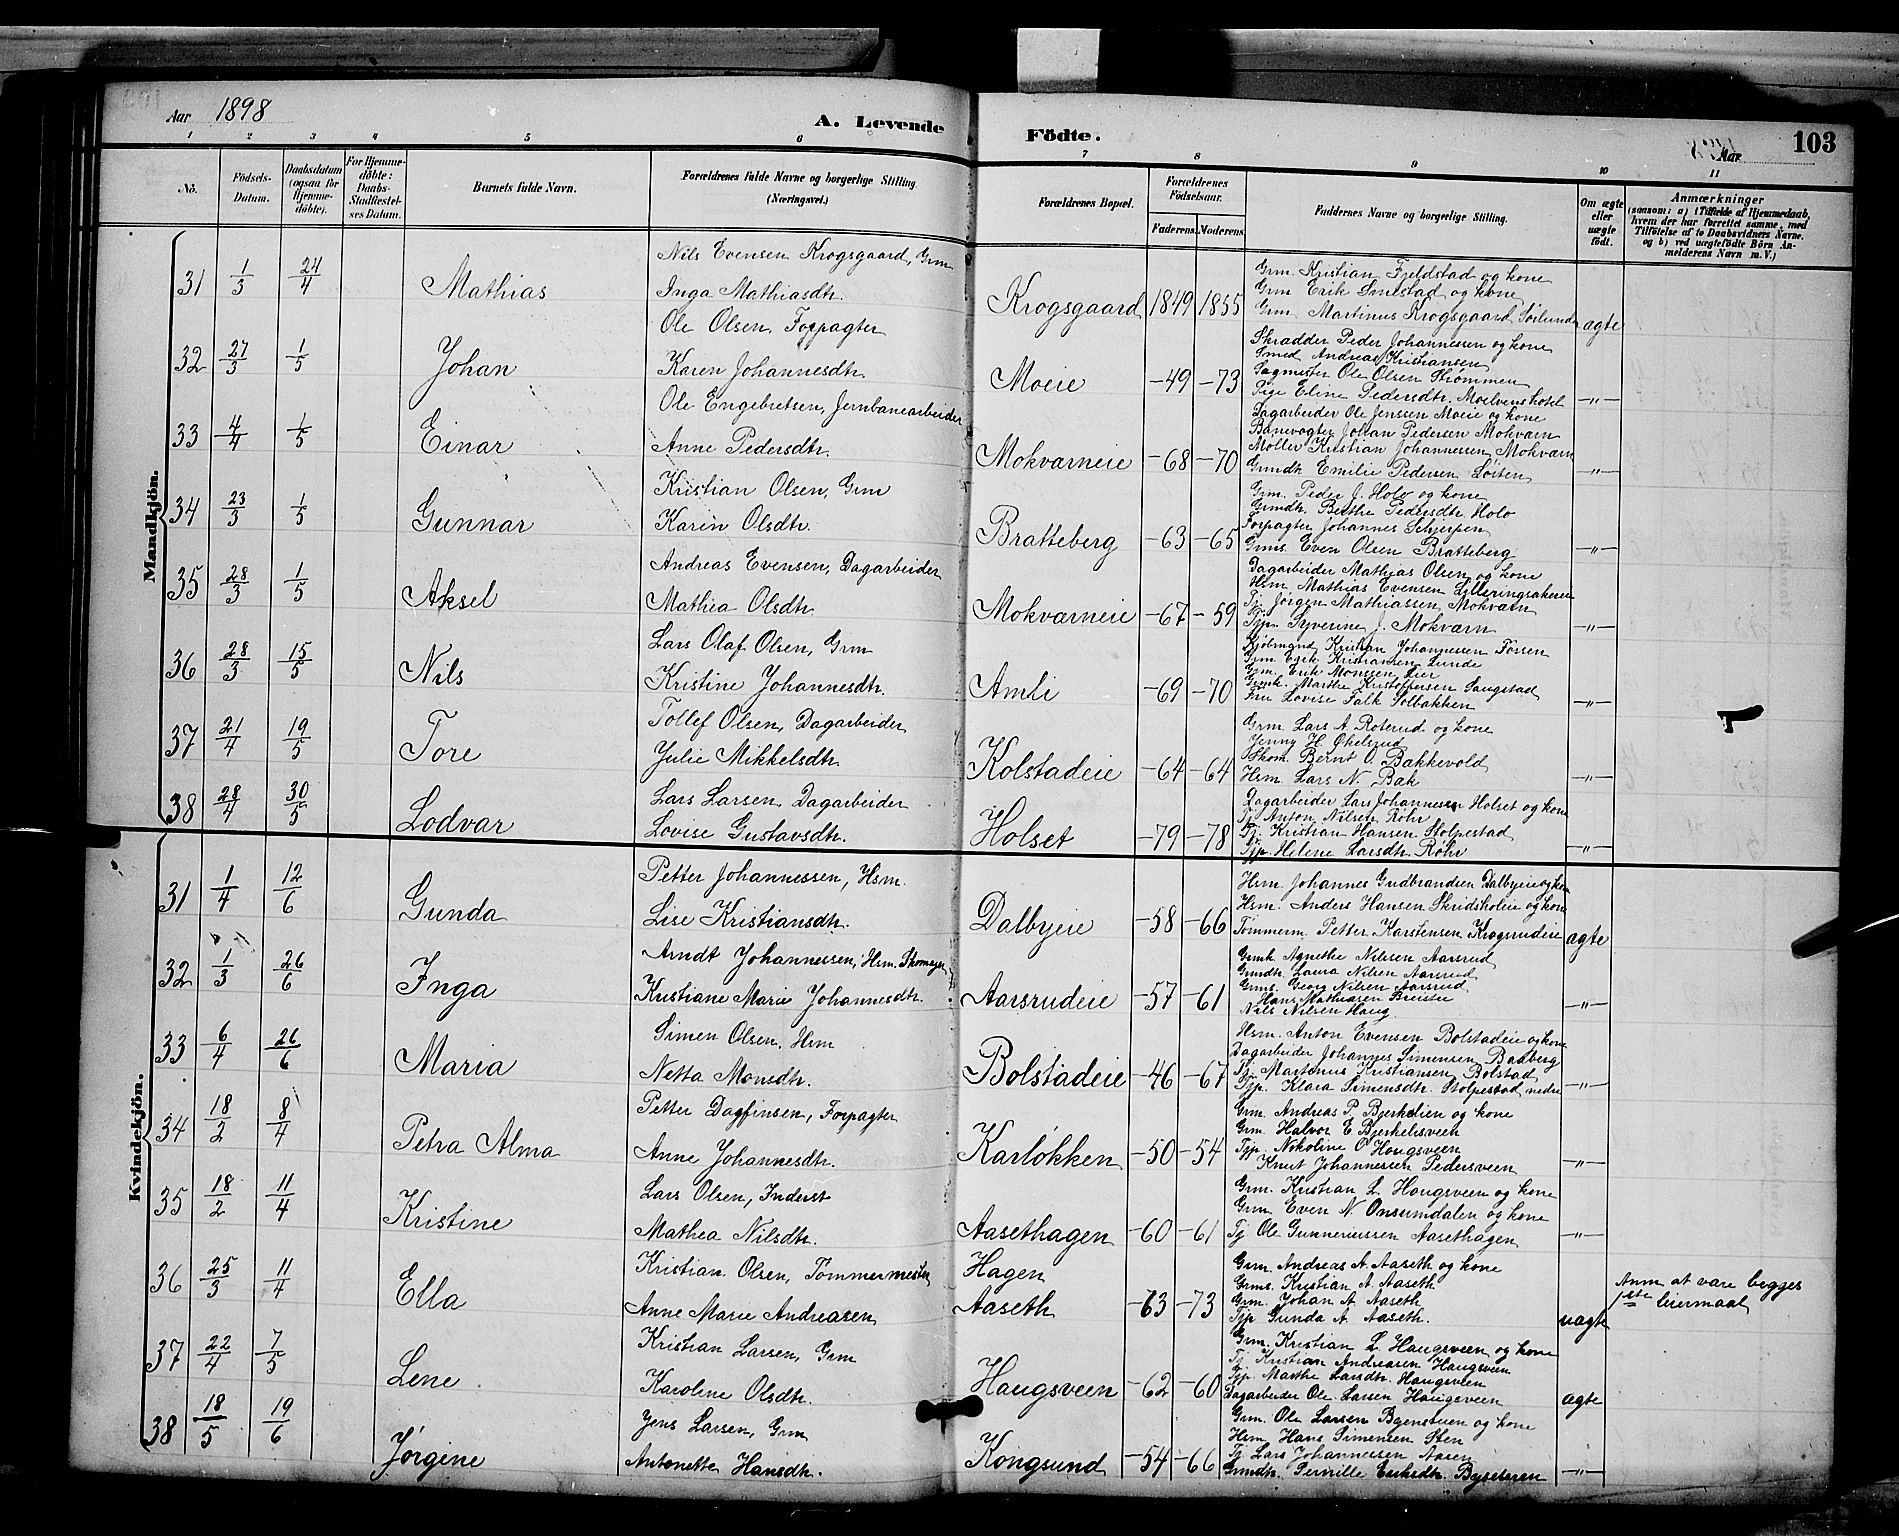 Aar 1898
A. Levende Födte.
Aar 103
1 2 3 4 5 6 7 8 9 10 11
No. Födsels-Datum. Daabsdatum (ogsaa for Hjemmedöbte). For Hjemmedöbte: Daabs-Stadfæstelses Datum. Barnets fulde Navn. Forældrenes fulde Navne og borgerlige Stilling (Næringsvei.) Forældrenes Bopæl. Forældrenes Födselsaar. Faderens. Moderens. Faddernes Navne og borgerlige Stilling. Om ægte eller uægte födt. Anmærkninger (saasom: a) i Tilfælde af Hjemmedaab, hvem der har forrettet samme, med Tilföielse af to Daabsvidners Navne, og b) ved uægtefödte Börn Anmelderens Navn m. V.)
Mandkjön.
31 1/3 24/4 Mathias
Nils Evensen Krogsgaard, Grm
Inga Mathiasdtr.
Krogsgaard 1849 1855
Grm. Kristian Fjeldstad og kone
Grm Erik Smestad og kone
Grm Martinus Krogsgaard Sørlundn
ægte
32 27/3 1/5 Johan
Ole Olsen, Forpagter
Karen Johannesdtr.
Moeie -49 -73
Skradder Peder Johannessen og kone
Smed Andreas Kristiansen
Sagmester Ole Olsen Strømmen
Pige Eline Pedersdtr. Moelvens hotel
-"-
33 4/4 1/5 Einar
Ole Engebretsen, Jernbanearbeider
Anne Pedersdtr.
Mokværneie -68 -70
Dagarbeider Ole Jenssen Moeie og kone
Banevogter Johan Pedersen Mokværn
Møller Kristian Johannessen Mokværn
Grmdtr. Emilie Pedersen Løiten
-"-
34 23/3 1/5 Gunnar
Kristian Olsen, Grm
Karin Olsdtr.
Bratteberg -63 -65
Grm. Peder J. Holo og kone
Grmdtr. Berthe Pedersdtr Holo
Forpagter Johannes Skjerpen
Grms. Even Olsen Bratteberg
-"-
35 28/3 1/5 Aksel
Andreas Evensen, Dagarbeider
Mathea Olsdtr.
Mokværneie -67 -59
Dagarbeider Mathias Olsen og kone
Hsm. Mathias Evensen Lilleringsakeren
Tj Jørgen Mathiassen Mokværn
Tjp. Syverine J. Mokværn
-"-
36 28/3 15/5 Nils
Lars Olaf Olsen, Grm
Kristine Johannesdtr.
Amli -69 -70
Kjøbmand Kristian Johannessen Fossen
Grm Erik Kristiansen Lunde
Grm. Erik Monssen Lier
Grmk. Marthe Kristoffersen Saugstad
Fru Lovise Falk Solbakken
-"-
37 21/4 19/5 Tore
Tollef Olsen, Dagarbeider
Julie Mikkelsdtr.
Kolstadeie -64 -64
Grm Lars A. Roterud og kone
Jenny H. Økelsrud
Skom. Bernt O. Bakkevold
Hsm. Lars N. Bak
-"-
38 28/4 30/5 Lodvar
Lars Larsen, Dagarbeider
Lovise Gustavsdtr.
Holset -79 -78
Dagarbeider Lars Johannessen Holset og kone
Tj Anton Nilsen Røhr
Tj. Kristian Hansen Stolpestad
Tjp. Helene Larsdtr. Røhr
-"-
Kvindekjön.
31 1/4 12/6 Gunda
Petter Johannessen, Hsm.
Lise Kristiansdtr.
Dalbyeie -58 -66
Hsm. Johannes Gudbrandsen Dalbyeie og kone
Hsm. Anders Hansen Skridsholeie og kone
Tømmerm Petter Karstensen Krogsrudeie
ægte
32 1/3 26/6 Inga
Arndt Johannessen, Hsm. Skomager
Kristiane Marie Johannesdtr.
Aarsrudeie -57 -61
Grmk Agnethe Nilsen Aarsrud
Grmdtr. Laura Nilsen Aarsrud
Grms. Georg Nilsen Aarsrud
Hans Mathiasen
Nils Nilsen Haug
-"-
33 6/4 26/6 Maria
Simen Olsen, Hsm
Netta Monsdtr.
Bolstadeie -46 -67
Hsm. Anton Evensen Bolstadeie og kone
Dagarbeider Johannes Simensen Baaberg
Tj. Martinus Kristiansen Bolstad
Tjp. Klara Simensdtr. Stolpestad nedre
-"-
34 18/2 8/4 Petra Alma
Petter Dagfinsen, Forpagter
Anne Johannesdtr.
Karløkken -50 -54
Grm. Andreas P. Bjerkelien og kone
Grm. Halvor E Bjerkelisveen
Tjp. Nokoline O Haugsveen
Knut Johannessen Pedersveen
-"-
35 18/2 11/4 Kristine
Lars Olsen, Inderst
Mathea Nilsdtr.
Aasethagen -60 -61
Grm. Kristian L. Haugsveen og kone
Grm Even N. Onsumdalen og kone
Tj Ole Gunneriussen Aasethagen
-"-
36 25/3 11/4 Ella
Kristian Olsen, Tømmermester
Anne Marie Andreasen
Hagen
Aaseth -63 -73
Grm. Andreas A. Aaseth og kone
Grms. Kristian A. Aaseth
Grm. Johan A Aaseth
Tjp Gunda A. Aaseth.
uægte
Anm at vare begges
1ste leiermaal
37 22/4 7/5 Lene
Kristian Larsen, Grm
Karoline Olsdtr.
Haugsveen -62 -60
Grm. Kristian L. Haugsveen og kone
Tj Kristian Andreasen Haugsveen
Tjp. Marthe Larsdtr. Haugsveen
Dagarbeider Ole Larsen Haugsveen
ægte
38 18/5 19/6 Jørgine
Jens Larsen, Grm
Antonette Hansdtr.
Kongsund -54 -66
Grm. Ole Larsen Bgenstuen og kone
Hsm Hans Simensen Sten
Tj Lars Johannessen Aasen
Grmdtr. Pernille Eriksdtr. Byseteren
-"-